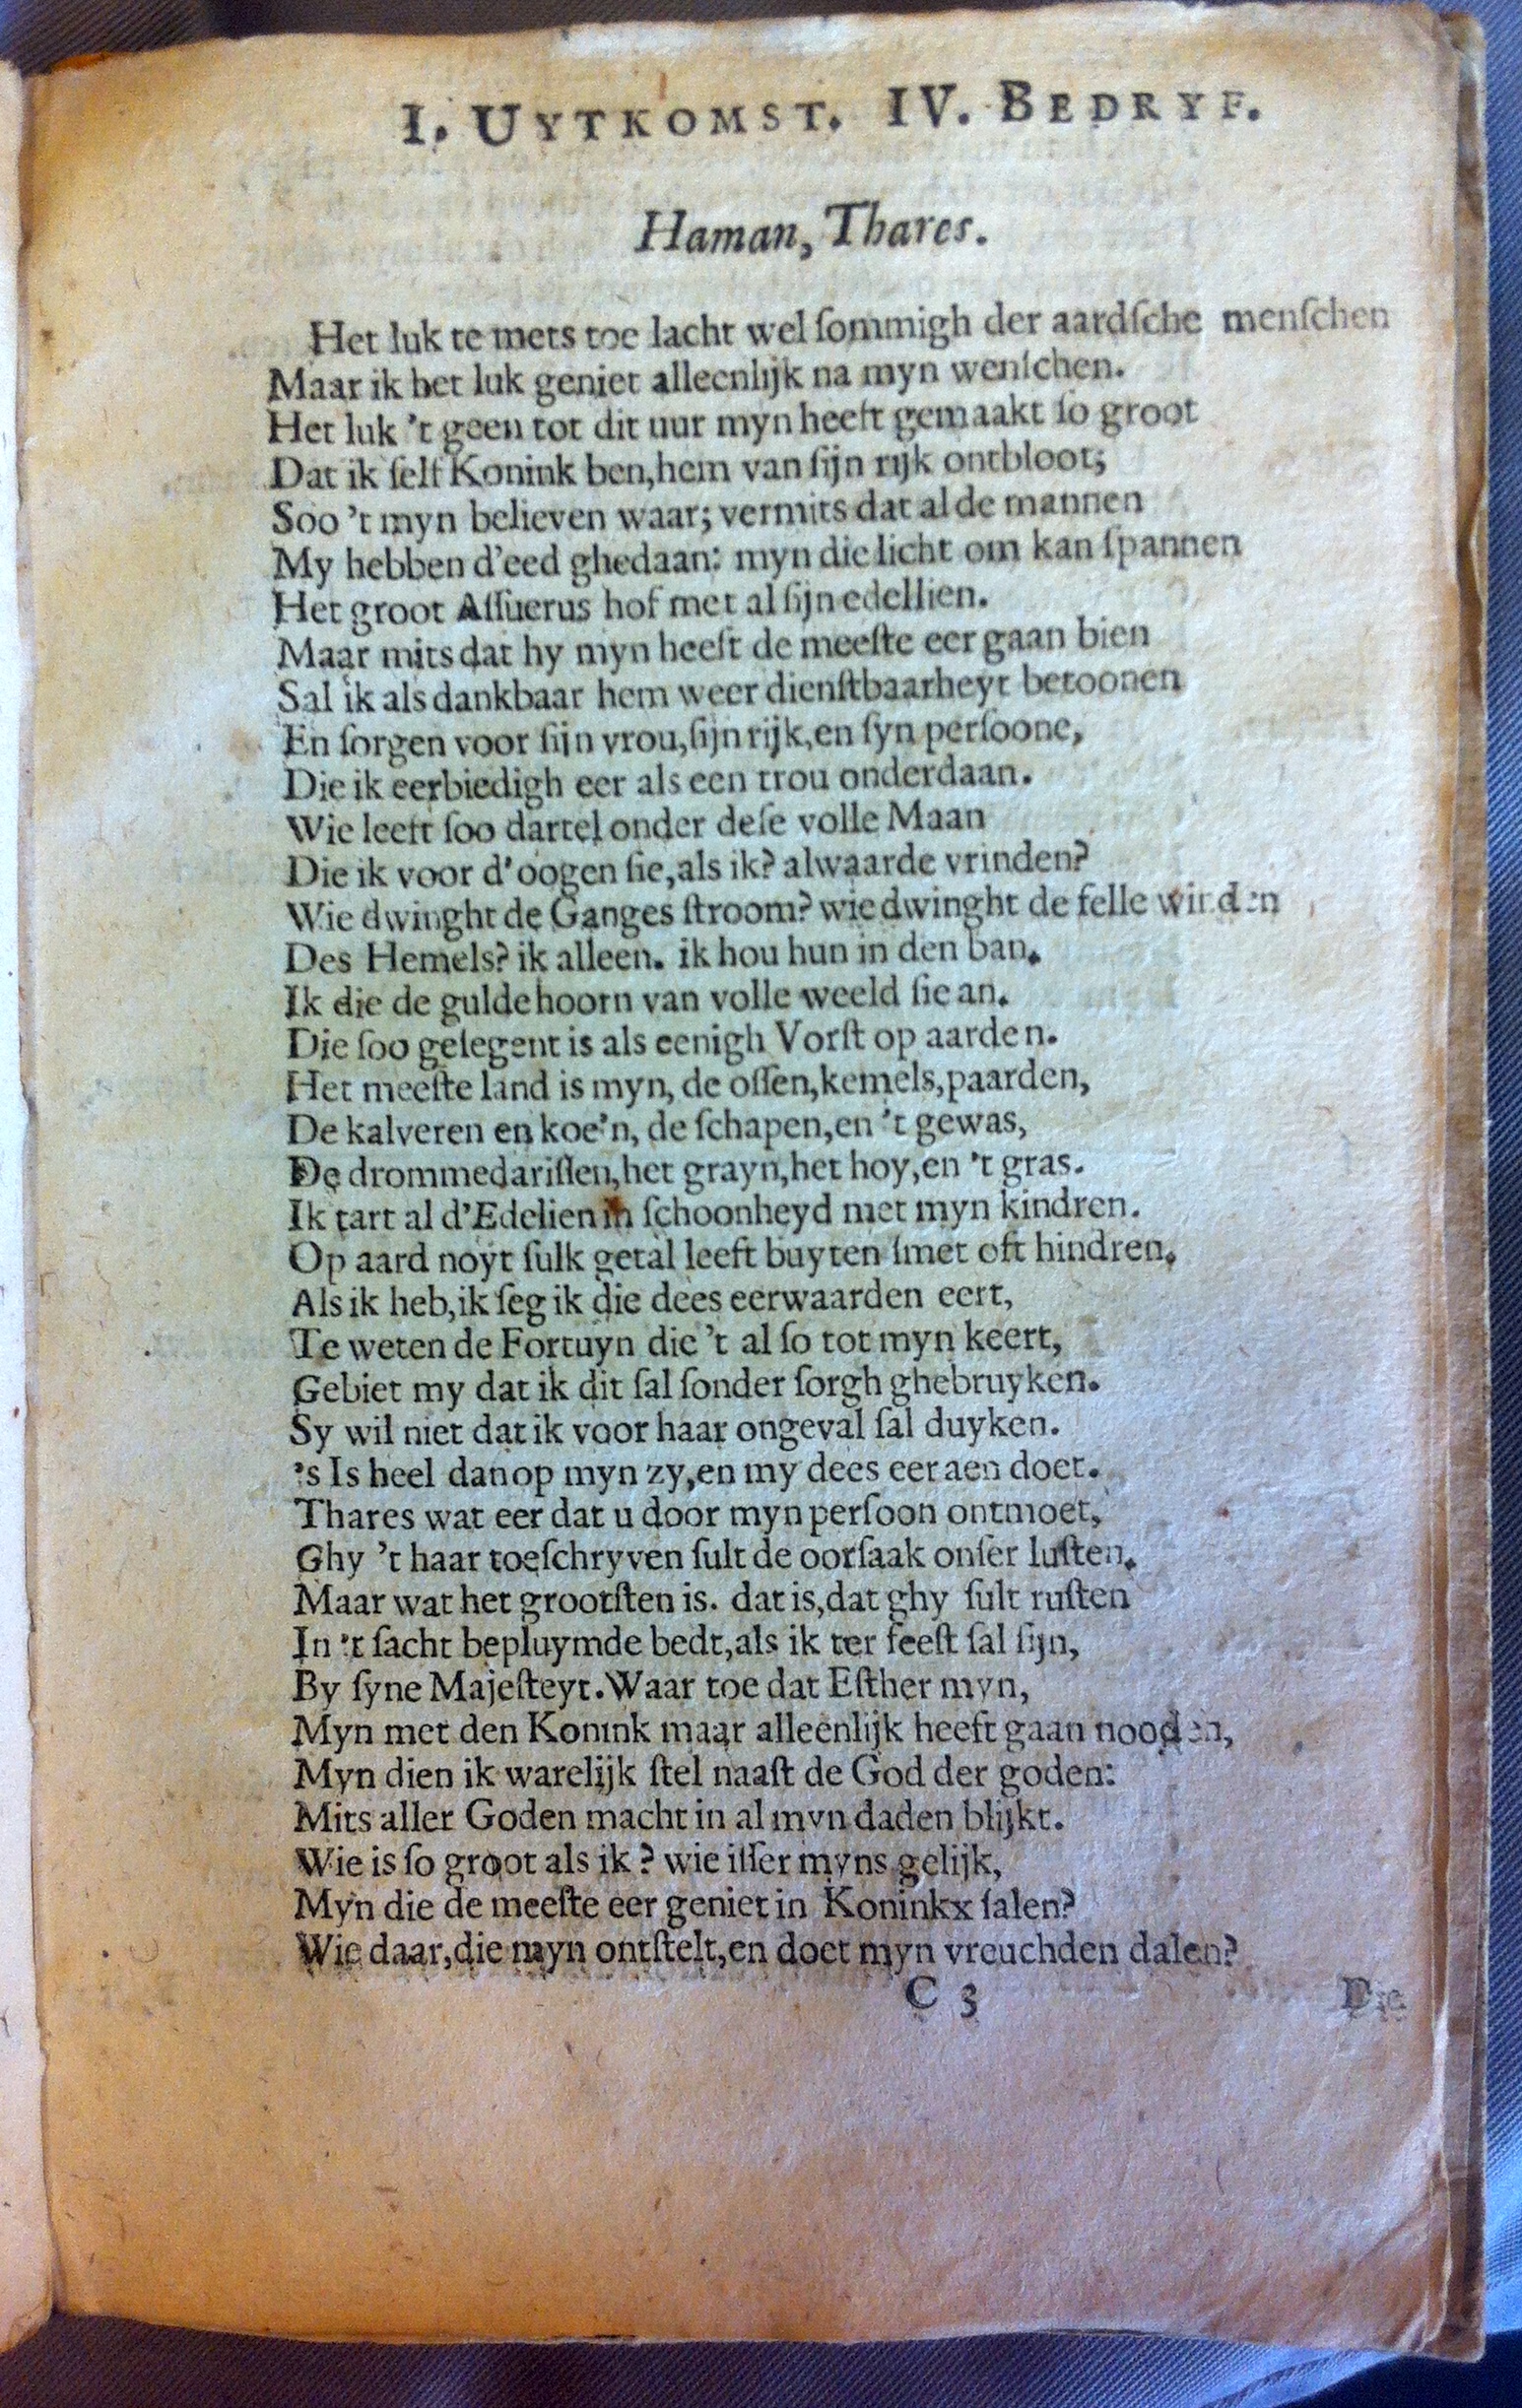 I. UYTKOMST. IV. BEDRYF.
Haman, Thares.
Het luk te mets toe lacht wel ſommigh der aardſche menſchen
Maar ik het luk geniet alleenlijk na myn wenſchen.
Het luk 't geen tot dit uur myn heeft gemaakt ſo groot
Dat ik ſelf Konink ben, hem van ſijn rijk ontbloot;
Soo 't myn believen waar; vermits dat al de mannen
My hebben d'eed ghedaan: myn die licht om kan ſpannen
Het groot Aſſuerus hof met al ſijn edellien.
Maar mits dat hy myn heeft de meeſte eer gaan bien
Sal ik als dankbaar hem weer dienſtbaarheyt betoonen
En ſorgen voor ſijn vrou, ſijn rijk, en ſyn perſoone,
Die ik eerbiedigh eer als een trou onderdaan.
Wie leeft ſoo dartel onder deſe volle Maan
Die ik voor d'oogen ſie, als ik? alwaarde vrinden?
Wie dwinght de Ganges ſtroom? wie dwinght de felle winden
Des Hemels? ik alleen. ik hou hun in den ban.
Ik die de gulde hoorn van volle weeld ſie an.
Die ſoo gelegent is als eenigh Vorſt op aarden.
Het meeſte land is myn, de oſſen, kemels, paarden,
De kalveren en koe'n, de ſchapen, en 't gewas,
De drommedariſſen, het grayn, het hoy, en 't gras.
Ik tart al d'Edelien in ſchoonheyd met myn kindren.
Op aard noyt ſulk getal leeft buyten ſmet oft hindren.
Als ik heb, ik ſeg ik die dees eerwaarden eert,
Te weten de Fortuyn die 't al ſo tot myn keert,
Gebiet my dat ik dit ſal ſonder ſorgh ghebruyken.
Sy wil niet dat ik voor haar ongeval ſal duyken.
's Is heel dan op myn zy, en my dees eer aen doet.
Thares wat eer dat u door myn perſoon ontmoet,
Ghy 't haar toeſchryven ſult de oorſaak onſer luſten.
Maar wat het grootſten is. dat is, dat ghy ſult ruſten
In 't ſacht bepluymde bedt, als ik ter feeſt ſal ſijn,
By ſyne Majeſteyt. Waar toe dat Eſther myn,
Myn met den Konink maar alleenlijk heeft gaan nooden,
Myn dien ik warelijk ſtel naaſt de God der goden:
Mits aller Goden macht in al myn daden blijkt.
Wie is ſo groot als ik? wie iſſer myns gelijk,
Myn die de meeſte eer geniet in Koninkx ſalen?
Wie daar, die myn ontſtelt, en doet myn vreuchden dalen?
C 3
Die